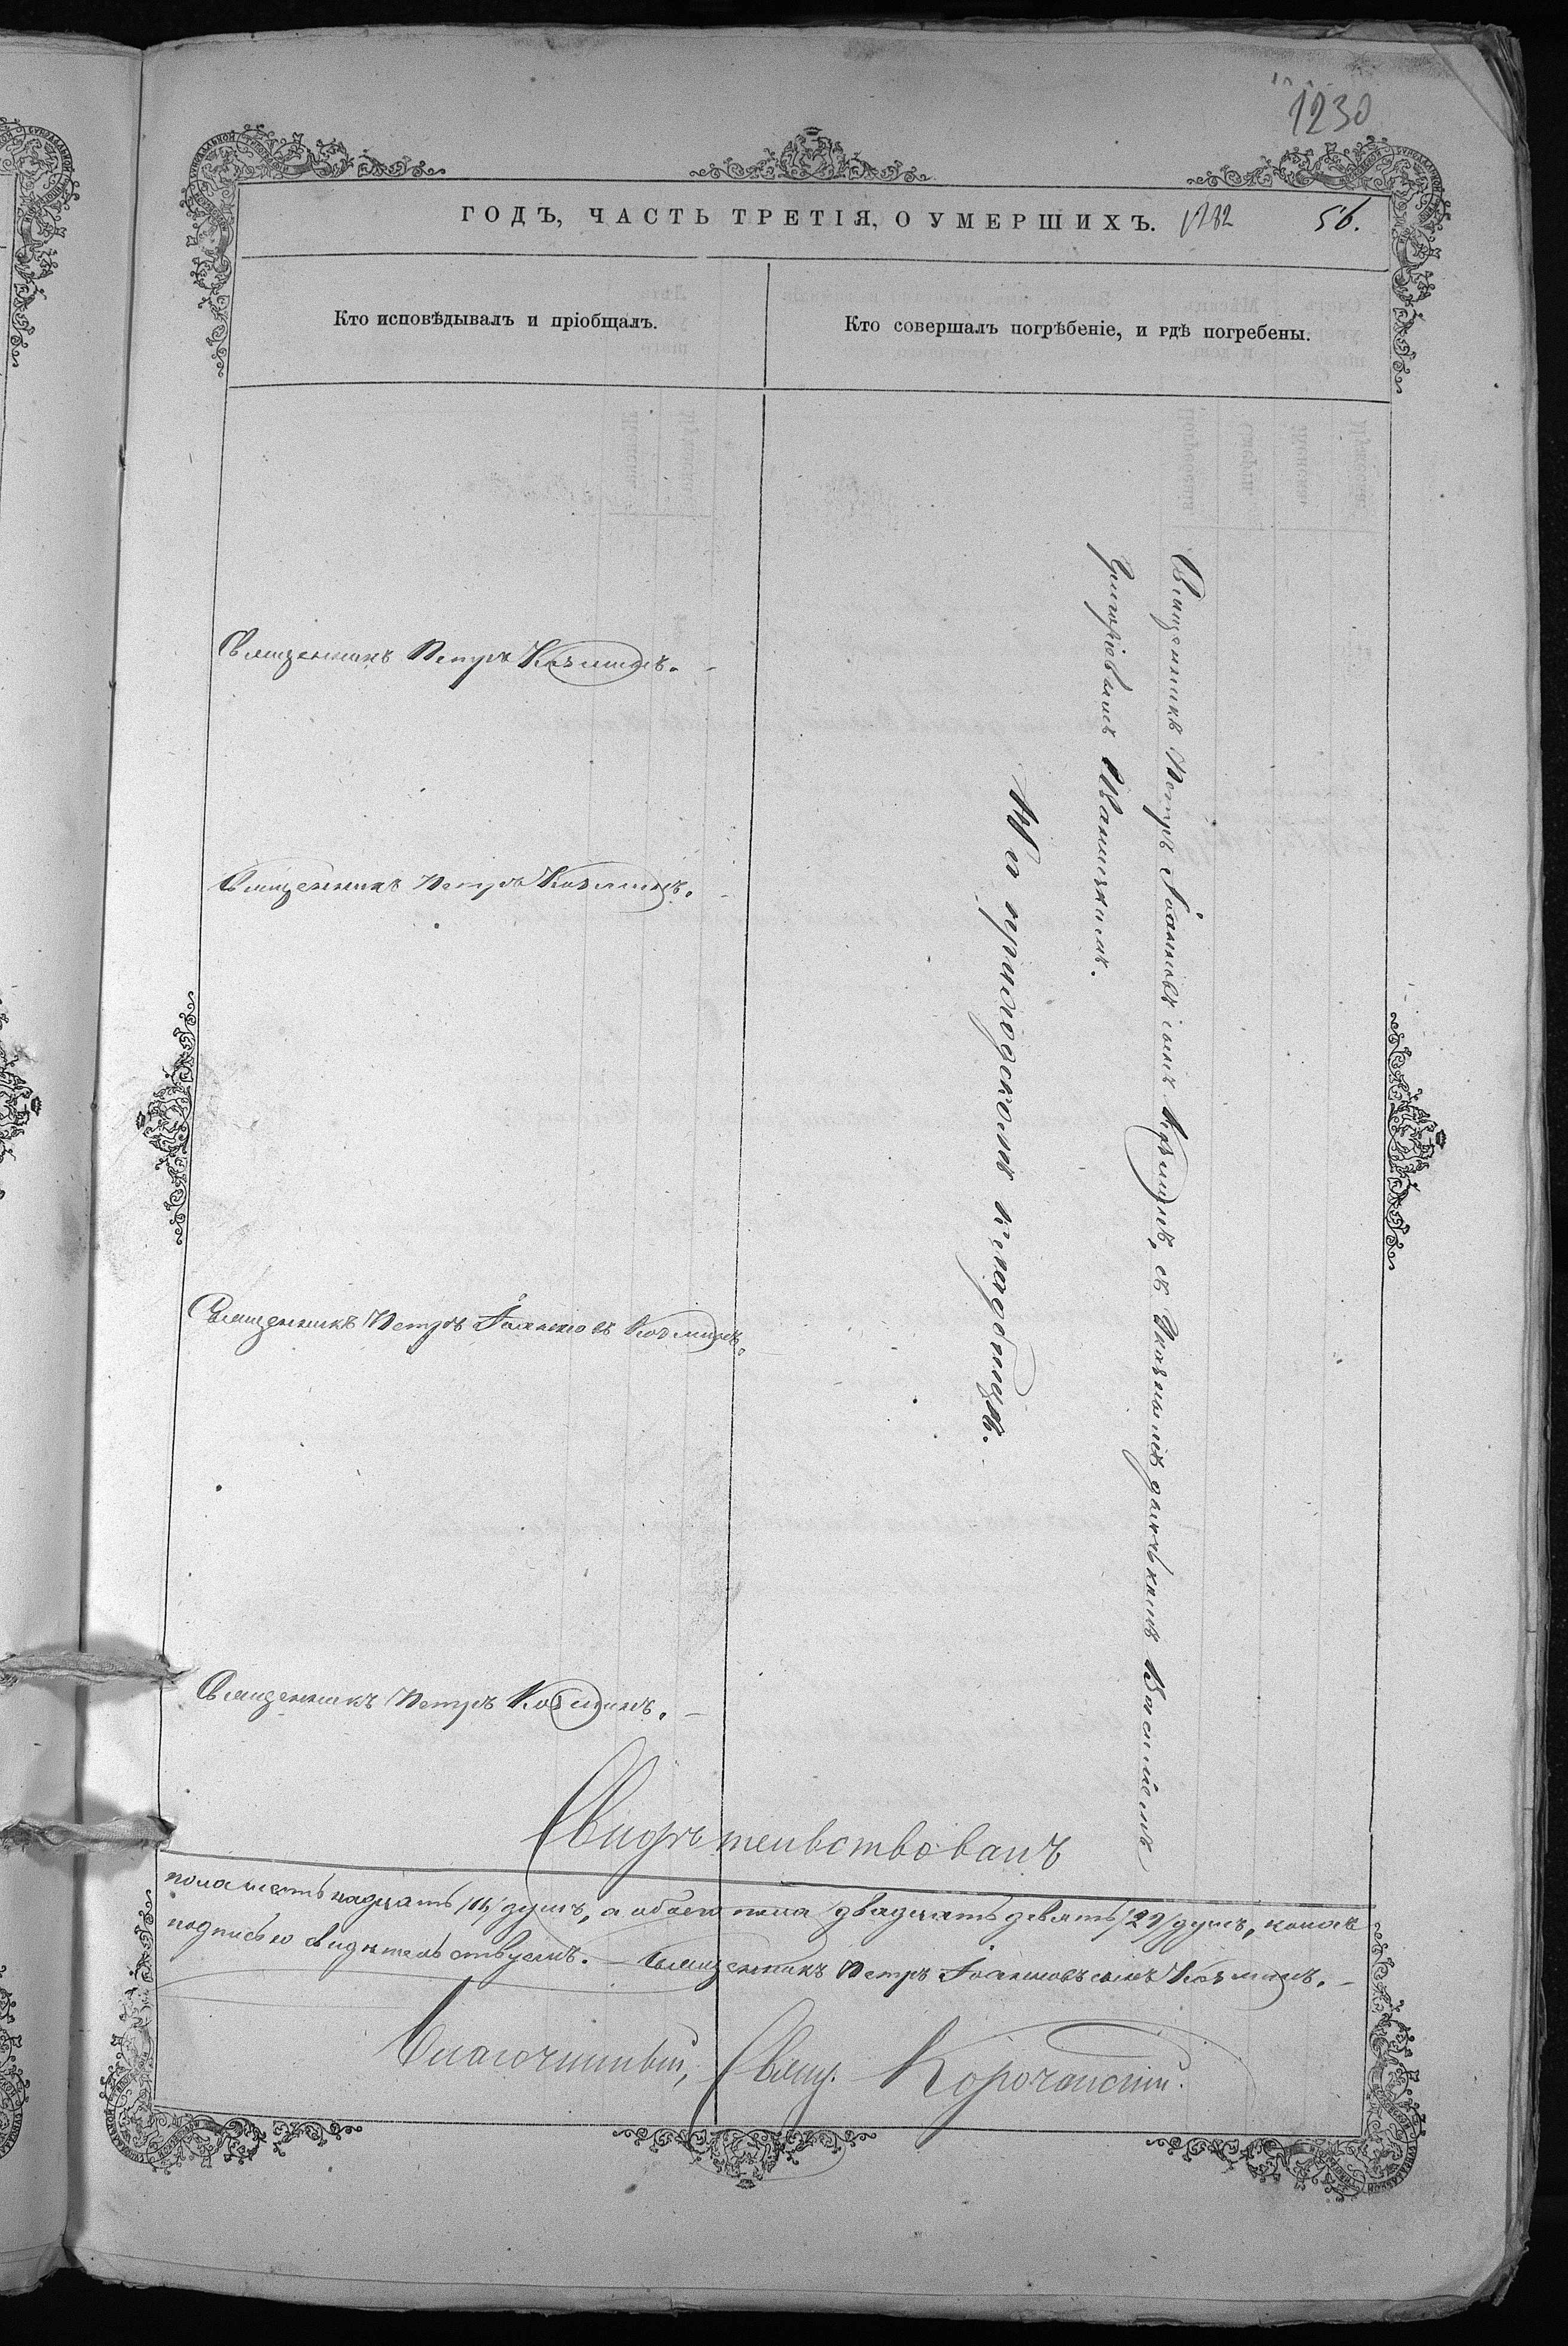 1230
ГОДЪ, ЧАСТЬ ТРЕТІЯ, О УМЕРШИХЪ. 56.
Кто исповѣдывалъ и пріобщалъ.
Кто совершалъ погрѣбеніе, и гдѣ погребены.
Священникъ Петръ Козминъ.
Священникъ Петръ Козминъ.
Священникъ Петръ Іоанновъ Козминъ.
Священникъ Петръ Козминъ.
Священникъ Петръ Іоанновъ сынъ Козминъ, съ дьячкомъ Василіемъ
Григоріевымъ
На приходскомъ кладбищѣ.
Свидѣтельствовалъ
пола четырнадцать /14/ душъ, а обоего пола двадцать девять /29/ душъ,
подписью свидѣтельствуемъ. — Священникъ Петръ Іоанновъ сынъ Козминъ. —
Благочинный, Свящ. Корочанскій.